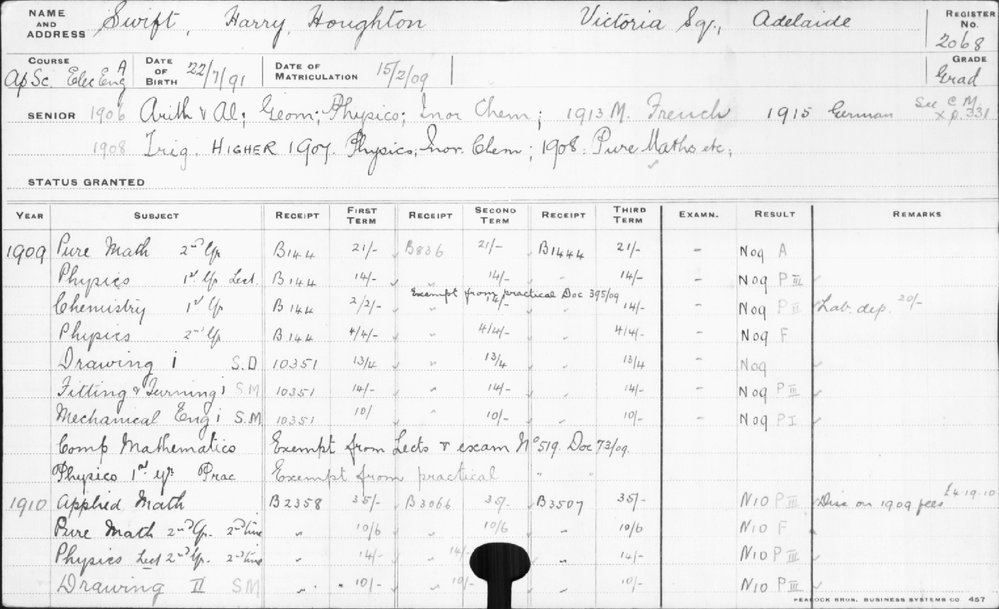 NAME AND ADDRESS Swift, Harry, Houghton Victoria Sq., Adelaide REGISTER No. 2068
COURSE ApSc. Elec Eng A DATE OF BIRTH 22/7/91 DATE OF MATRICULATION 15/2/09 GRADE Grad
SENIOR 1906 Arith & Al; Geom; Physics; Inor Chem; 1913 M. French 1915 German See C.M. x p. 331
1908 Trig. HIGHER 1907. Physics; Inor. Chem; 1908. Pure Maths etc;
STATUS GRANTED
YEAR SUBJECT RECEIPT FIRST TERM RECEIPT SECOND TERM RECEIPT THIRD TERM EXAMN. RESULT REMARKS
1909 Pure Math 2nd Yr B144 21/- B836 21/- B1444 21/- - No9 A
Physics 1st Yr Lect. B144 14/- " 14/- " 14/- - No9 P III
Exempt from practical Doc 395/09
Chemistry 1st Yr B144 2/2/- 14/- - No9 P II Lab. dep. 20/-
Physics 2nd Yr B144 4/4/- " 4/4/- " 4/4/- - No9 F
Drawing i S.D 10351 13/4 " 13/4 " 13/4 - No9
Fitting & Turning i S M 10351 14/- " 14/- " 14/- - No9 P III
Mechanical Eng i S.M 10351 10/ " 10/- " 10/- - No9 P I
Comp Mathematics Exempt from Lects & exam No 519. Doc 73/09
Physics 1st yr Prac Exempt from practical " "
1910 Applied Math B2358 35/- B3066 35/- B3507 35/- N10 P III Disc on 1909 fees £4.19.10
Pure Math 2nd Yr. 2nd time " 10/6 " 10/6 " 10/6 N10 F
Physics Lect 2nd Yr. 2nd time " 14/- " 14/- 14/- N10 P III
Drawing II S M " 10/- " 10/- 10/- N10 P III
PEACOCK BROS. BUSINESS SYSTEMS CO. 457